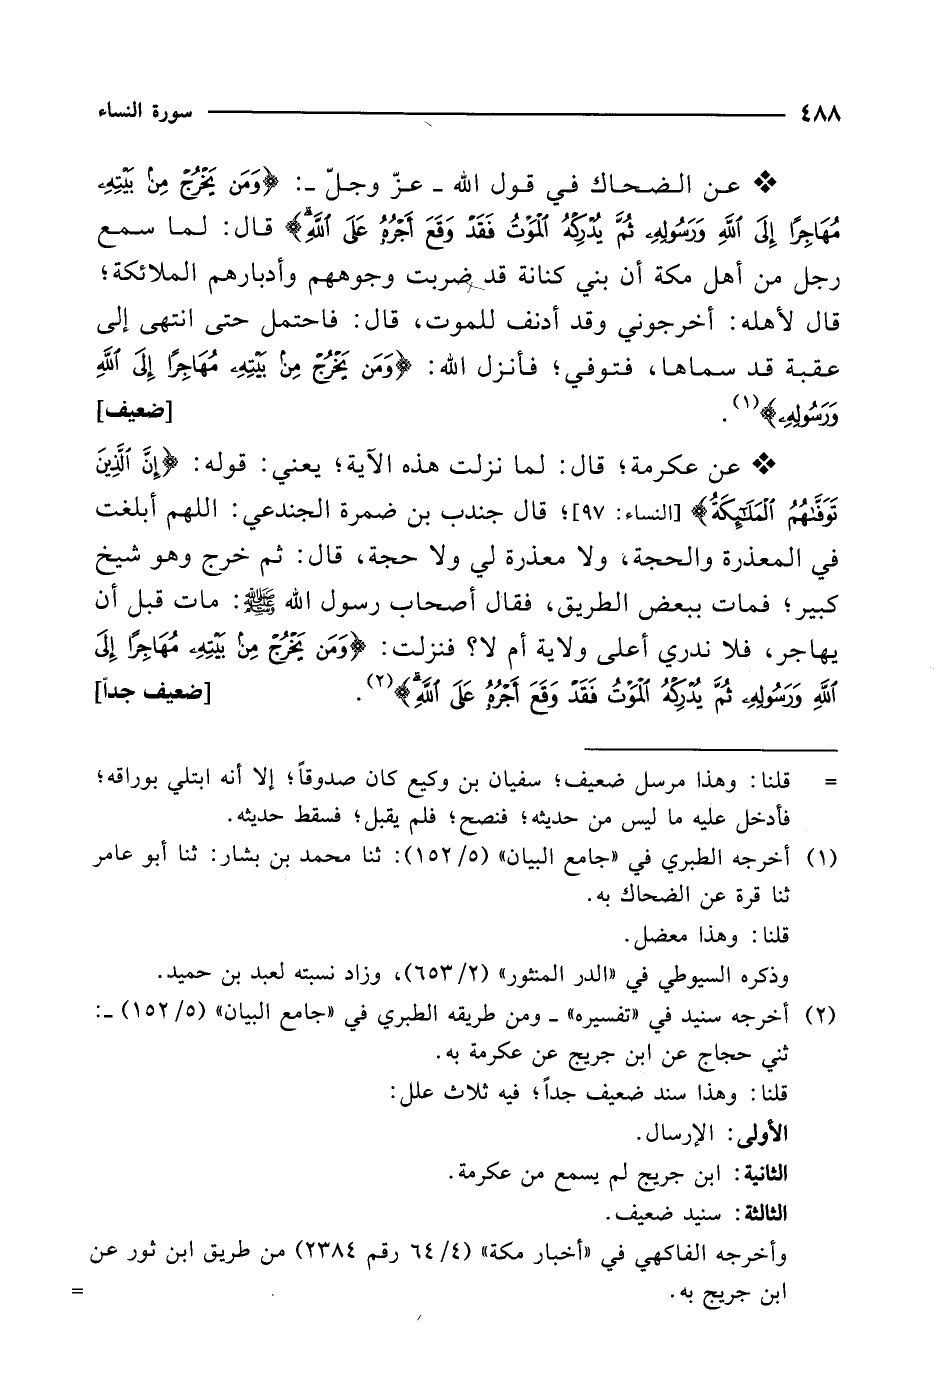 ٤٨٨ سورة النساء
❖ عـن الـضحاك فـي قـول الله ـ عـزّ وجـلّ ـ: ﴿وَمَن يَخْرُجْ مِنۢ بَيْتِهِۦ
مُهَاجِرًا إِلَى ٱللَّهِ وَرَسُولِهِۦ ثُمَّ يُدْرِكْهُ ٱلْمَوْتُ فَقَدْ وَقَعَ أَجْرُهُۥ عَلَى ٱللَّهِۗ﴾ قـال: لـمـا سـمـع
رجـل مـن أهـل مكة أن بني كنانة قد ضربت وجوههم وأدبارهم الملائكة؛
قال لأهله: أخرجوني وقد أدنف للموت، قال: فاحتمل حتى انتهى إلى
عقبة قد سماها، فتوفي؛ فأنزل الله: ﴿وَمَن يَخْرُجْ مِنۢ بَيْتِهِۦ مُهَاجِرًا إِلَى ٱللَّهِ
وَرَسُولِهِۦ﴾(١). [ضعيف]
❖ عن عكرمة؛ قال: لما نزلت هذه الآية؛ يعني: قوله: ﴿إِنَّ ٱلَّذِينَ
تَوَفَّىٰهُمُ ٱلْمَلَـٰٓئِكَةُ﴾ [النساء: ٩٧]؛ قال جندب بن ضمرة الجندعي: اللهم أبلغت
في المعذرة والحجة، ولا معذرة لي ولا حجة، قال: ثم خرج وهو شيخ
كبير؛ فمات ببعض الطريق، فقال أصحاب رسول الله ﷺ: مات قبل أن
يهاجر، فلا ندري أعلى ولاية أم لا؟ فنزلت: ﴿وَمَن يَخْرُجْ مِنۢ بَيْتِهِۦ مُهَاجِرًا إِلَى
ٱللَّهِ وَرَسُولِهِۦ ثُمَّ يُدْرِكْهُ ٱلْمَوْتُ فَقَدْ وَقَعَ أَجْرُهُۥ عَلَى ٱللَّهِۗ﴾(٢). [ضعيف جداً]
= قلنا: وهذا مرسل ضعيف؛ سفيان بن وكيع كان صدوقاً؛ إلا أنه ابتلي بوراقه؛
فأدخل عليه ما ليس من حديثه؛ فنصح؛ فلم يقبل؛ فسقط حديثه.
(١) أخرجه الطبري في «جامع البيان» (٥/ ١٥٢): ثنا محمد بن بشار: ثنا أبو عامر
ثنا قرة عن الضحاك به.
قلنا: وهذا معضل.
وذكره السيوطي في «الدر المنثور» (٢/ ٦٥٣)، وزاد نسبته لعبد بن حميد.
(٢) أخرجه سنيد في «تفسيره» ـ ومن طريقه الطبري في «جامع البيان» (٥/ ١٥٢) ـ:
ثني حجاج عن ابن جريج عن عكرمة به.
قلنا: وهذا سند ضعيف جداً؛ فيه ثلاث علل:
الأولى: الإرسال.
الثانية: ابن جريج لم يسمع من عكرمة.
الثالثة: سنيد ضعيف.
وأخرجه الفاكهي في «أخبار مكة» (٤/ ٦٤ رقم ٢٣٨٤) من طريق ابن ثور عن
ابن جريج به. =